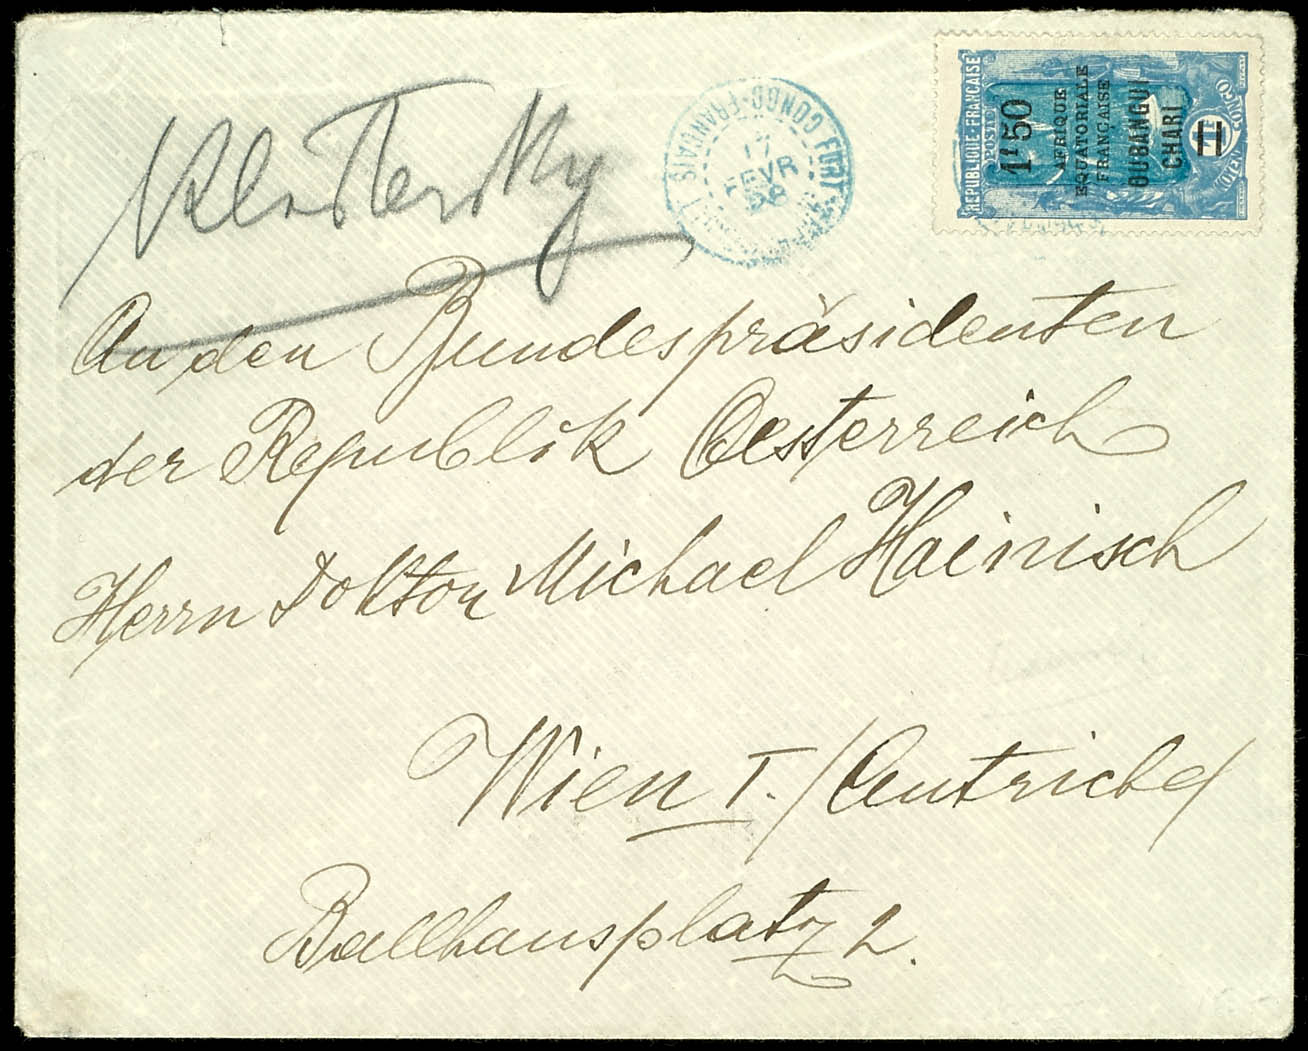 An den Bundespräsidenten
der Republik Oesterreich
Herrn Doktor Michael Hainisch
Wien I. / Autriche /
Ballhausplatz 2.
CONGO-FRANÇAIS
FORT
17
FEVR
REPUBLIQUE-FRANÇAISE
POSTES
1f50
AFRIQUE
EQUATORIALE
FRANÇAISE
OUBANGUI
CHARI
CONGO